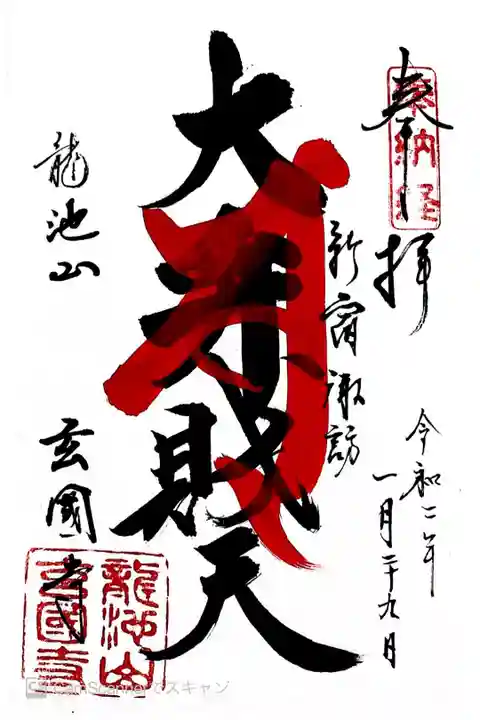 奉納経
奉拝
令和二年
一月二十九日
新宿諏訪
大弁財天
龍池山
玄國寺
龍池山
玄國寺
CS CamScannerでスキャン